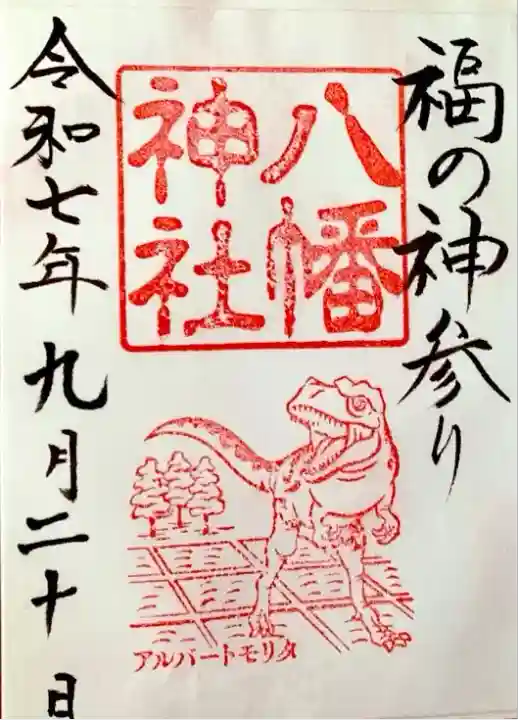 福の神参り
八幡
神社
令和七年九月二十日
アルバートモリタ